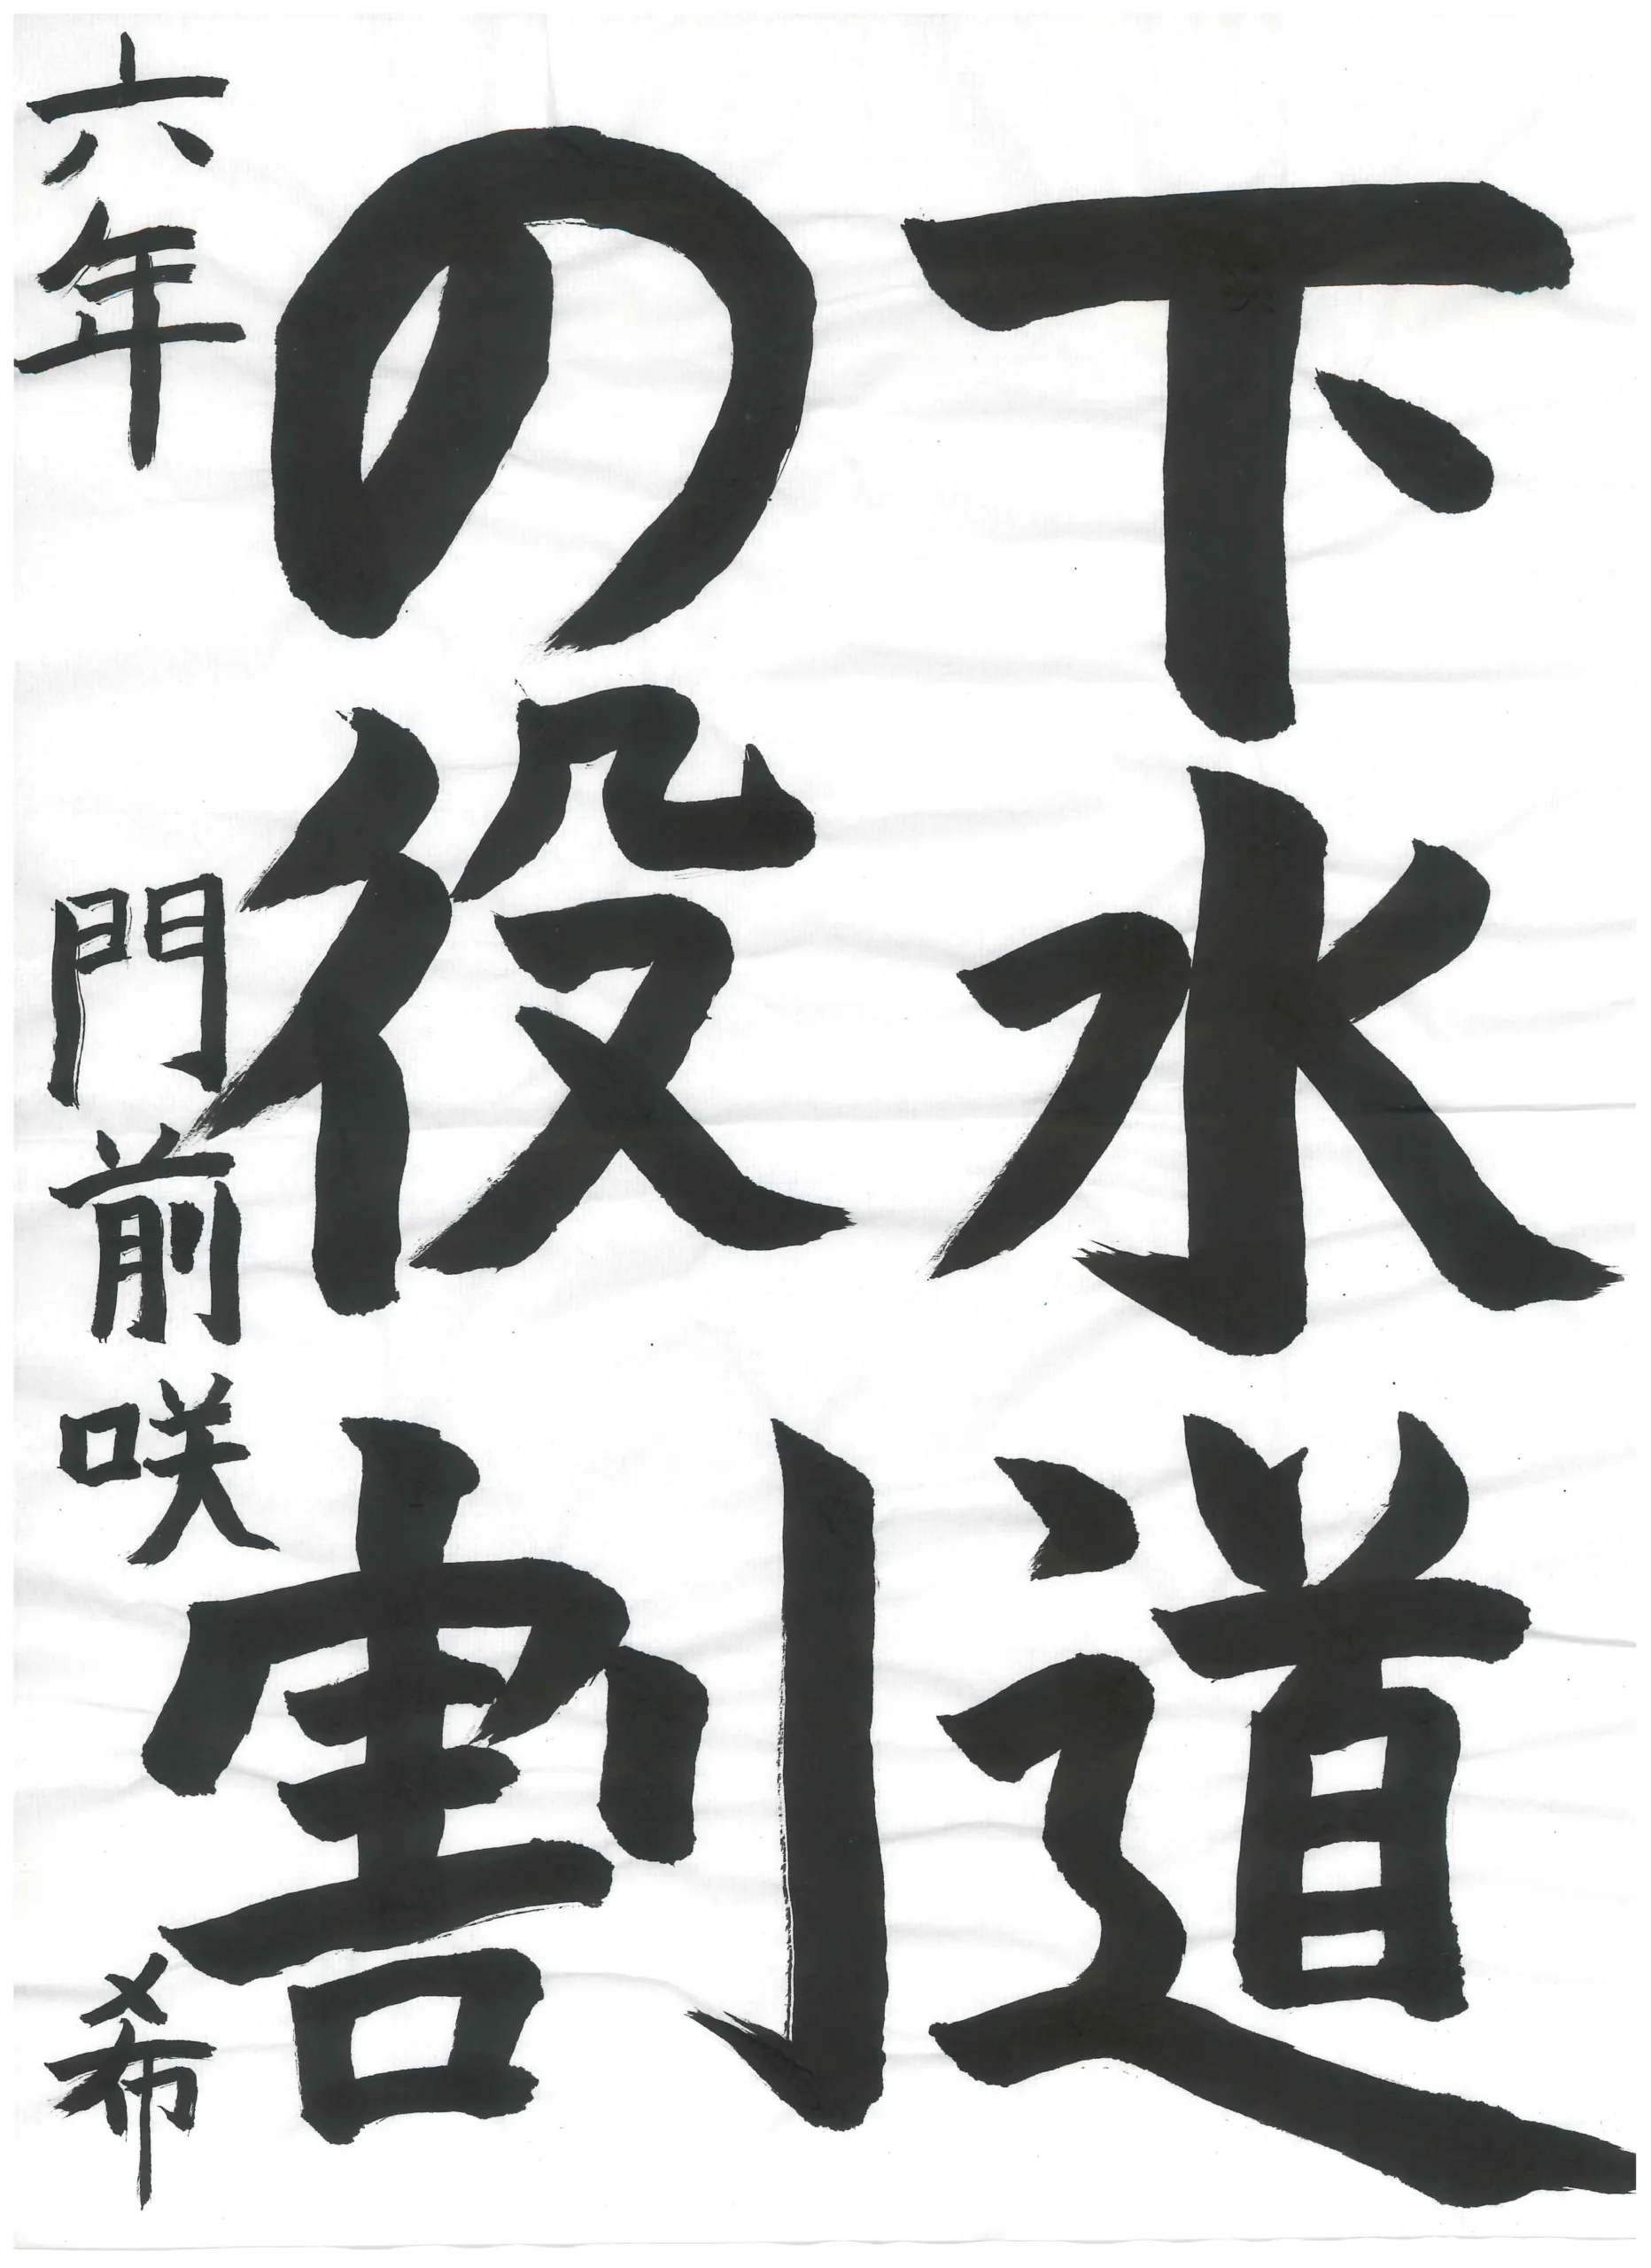 下水道
の役割
六年 門前咲希